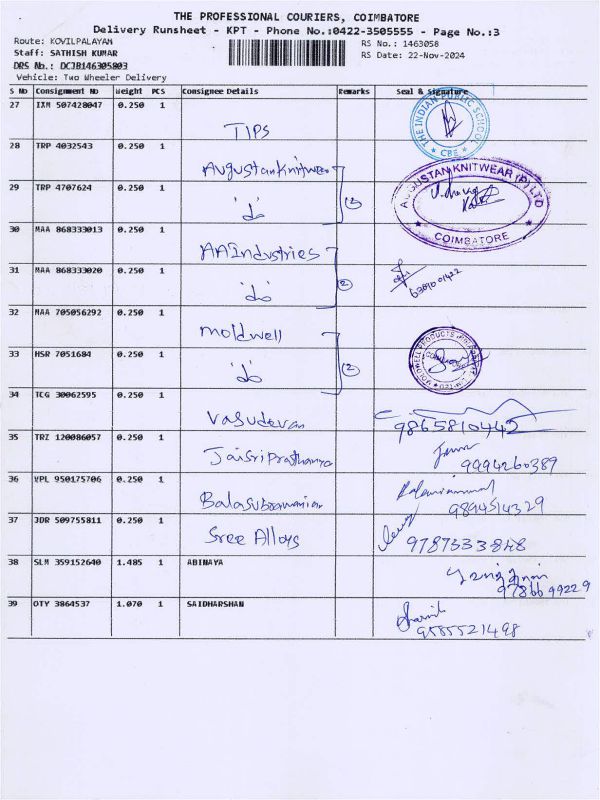 THE PROFESSIONAL COURIERS, COIMBATORE
Delivery Runsheet - KPT - Phone No.:0422-3505555 - Page No.:3
Route: KOVILPALAYAM RS No.: 1463058
Staff: SATHISH KUMAR RS Date: 22-Nov-2024
DRS No.: DCJB146305803
Vehicle: Two Wheeler Delivery
S No Consignment No Weight PCS Consignee Details Remarks Seal & Signature
27 IXM 507428047 0.250 1 TIPS THE INDIAN PUBLIC SCHOOL CBE
28 TRP 4032543 0.250 1 Augustan Knitwear AUGUSTAN KNITWEAR (P) LTD COIMBATORE
29 TRP 4707624 0.250 1 "do"
30 MAA 868333013 0.250 1 AA Industries
31 MAA 868333020 0.250 1 "do" (2) 6381001422
32 MAA 705056292 0.250 1 moldwell
33 HSR 7051684 0.250 1 "do" (2)
34 TCG 30062595 0.250 1 Vasudevan 9865810442
35 TRZ 120086057 0.250 1 Jaisri 9994260389
36 VPL 950175706 0.250 1 Balasubramanian 9894514329
37 JDR 509755811 0.250 1 Sree Alloys 9787333848
38 SLM 359152640 1.485 1 ABINAYA 9786699229
39 OTY 3864537 1.070 1 SAIDHARSHAN 9585521498